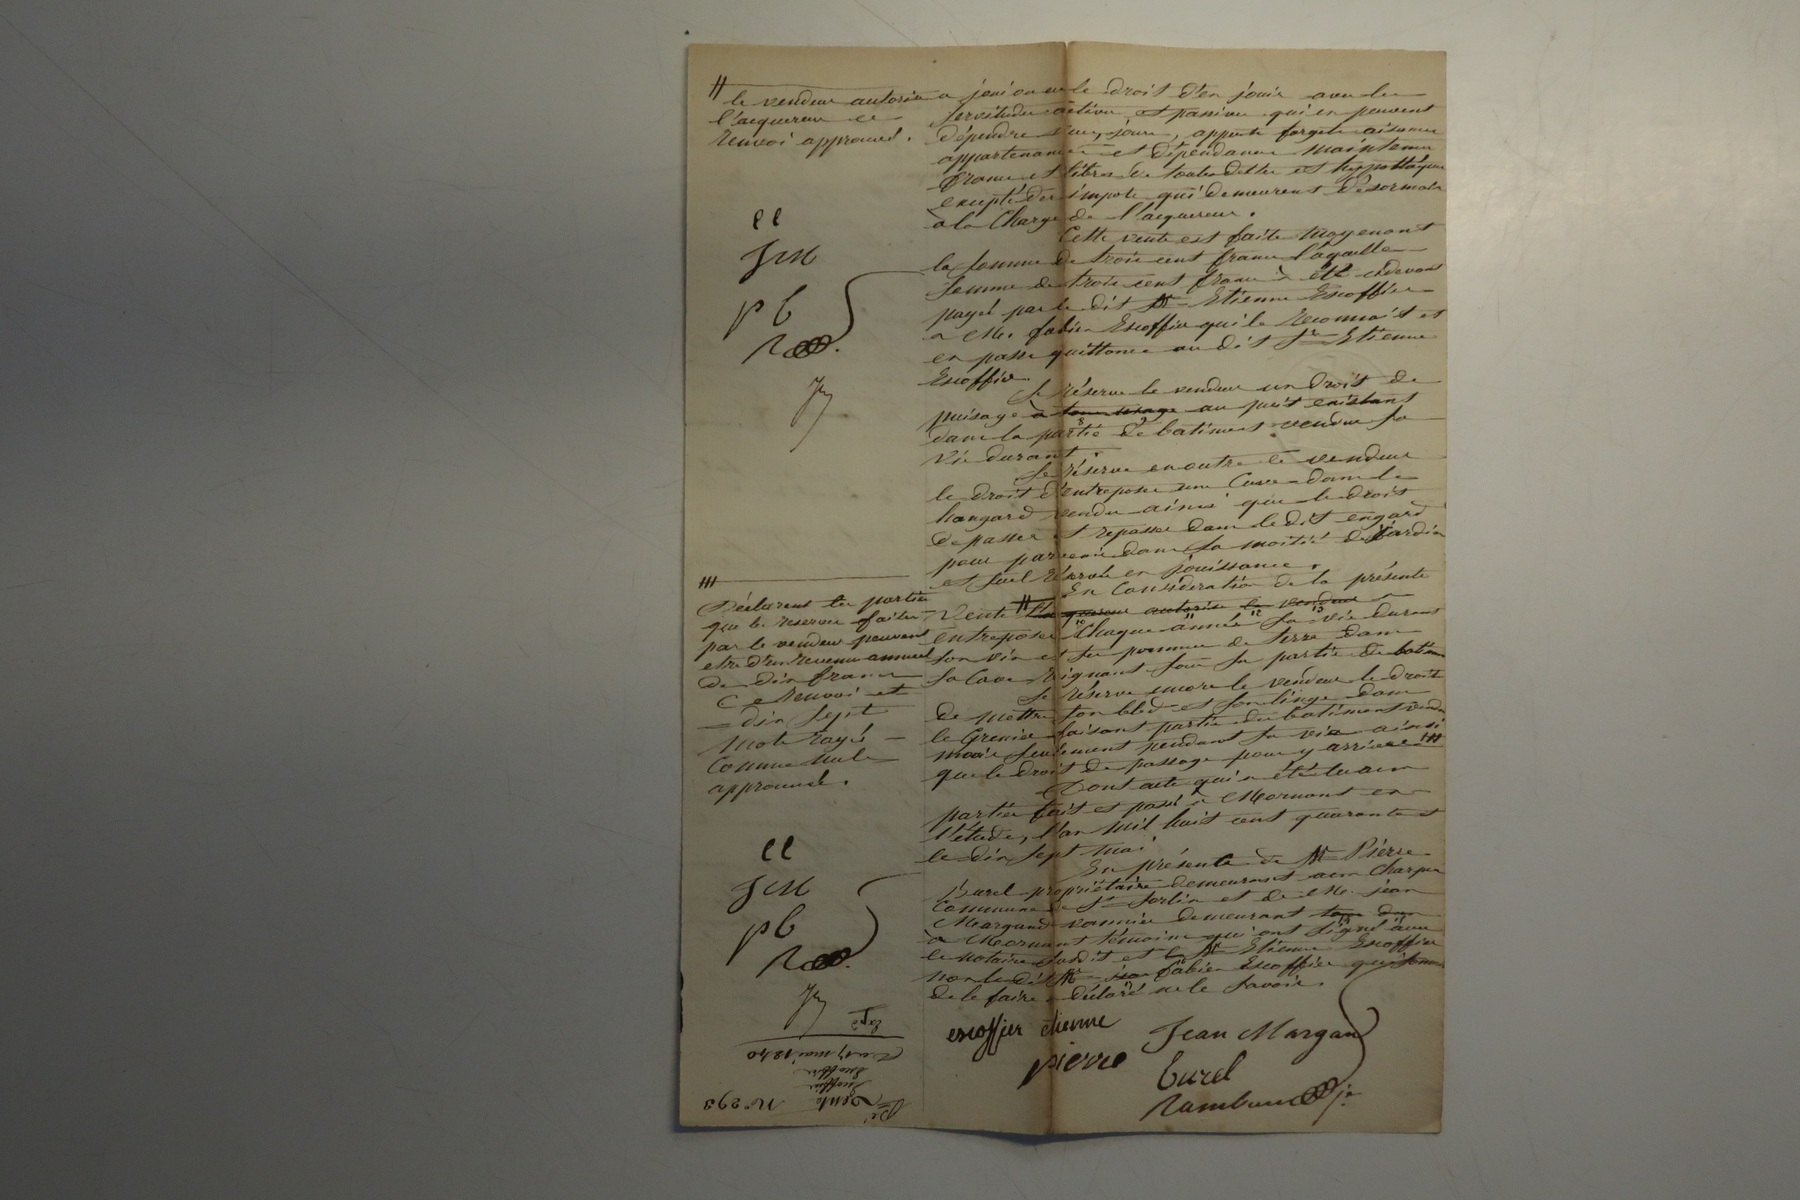 le vendeur autorise
l'acquereur ce
Renvoi approuvé.
ee
JM
pb
Déclarent les parties
que les reserves faites
par le vendeur peuvent
etre d'un revenu annuel
de dix francs
Ce Renvoi et
dix sept
mots rayés
Comme nuls
approuvés.
ee
JM
pb
a joui ou eu le droit d'en jouir avec les
servitudes actives et passives qui en peuvent
dépendre, jours, apports forgets aisances
appartenances et dépendances maintenu
franc et libre de toutes dettes et hypothèques
excepté des impots qui demeurent désormais
à la Charge de l'acquereur.
Cette vente est faite moyenant
la somme de trois cent francs laquelle
somme de trois cent francs à été cidevant
payé par le dit Sr Etienne Escoffier
a Mr. fabien Escoffier qui le Reconnait et
en passe quittance au dit Sr Etienne
Escoffier.
Se Réserve le vendeur un droit de
puisage à tous usage au puit existant
dans la partie de batiment vendue sa
vie durant.
Se réserve en outre le vendeur
le droit d'entreposer une Cuve dans le
hangard vendu ainsi que le droit
de passer et repasser dans le dit engard
pour parvenir dans la moitié de jardin
et suel réservée en jouissance.
En Considération de la présente
vente # l'acquereur autorise le vendeur a
entreposer Chaque année sa vie durant
son vin et ses pommes de terre dans
sa Cave Reignant sous sa partie de batim
Se réserve encore le vendeur le droit
de mettre son bled et son linge dans
le Grenier faisant partie du batiment vendu
mais seulement pendant sa vie ainsi
que le droit de passage pour y arriver
Dont acte qui a été lu aux
parties fait et passé à Mornant en
l'étude, l'an mil huit cent quarante et
le dix sept mai.
En présence de Mr Pierre
Burel propriétaire demeurant aux Charpen
Commune de St Sorlin et de Mr. jean
Margand vannier demeurant
à Mornant témoins qui ont Signé avec
le notaire susdit et le Sr Etienne Escoffier
non le dit Sr fabien Escoffier qui
de le faire a déclaré ne le savoir.
escoffier étienne
Jean Margand
pierre
burel
No 293
Vente
Escoffier
Escoffier
Du 17 mai 1840